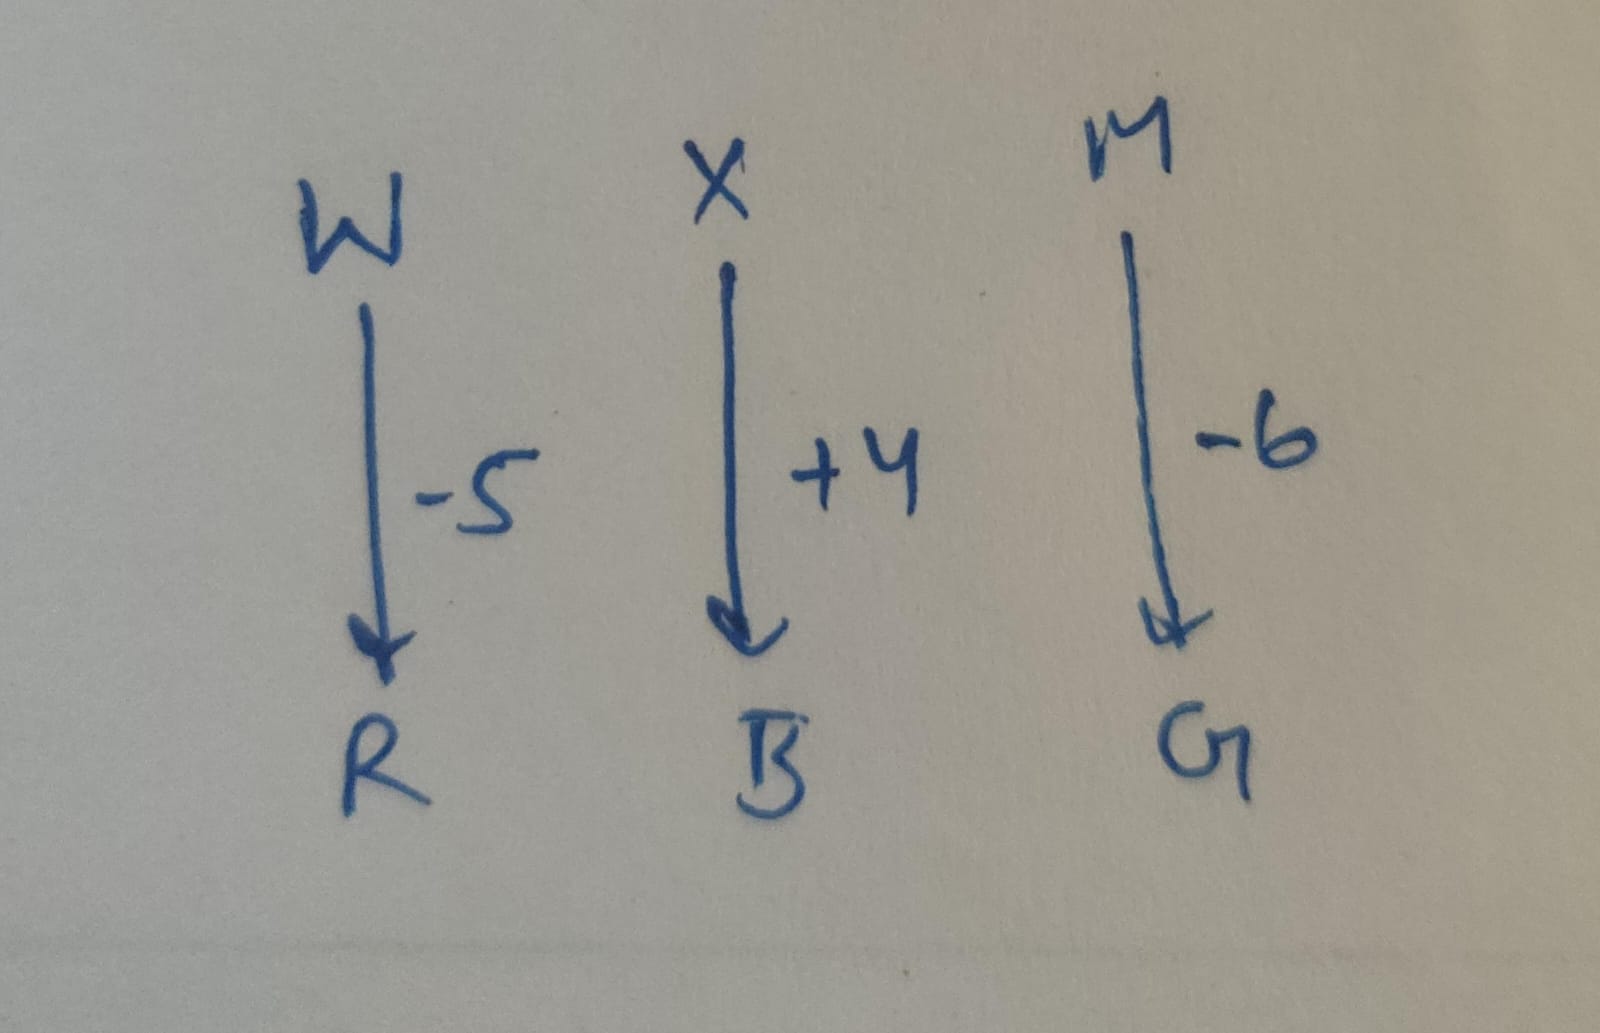 W X M
-5 +4 -6
R B G